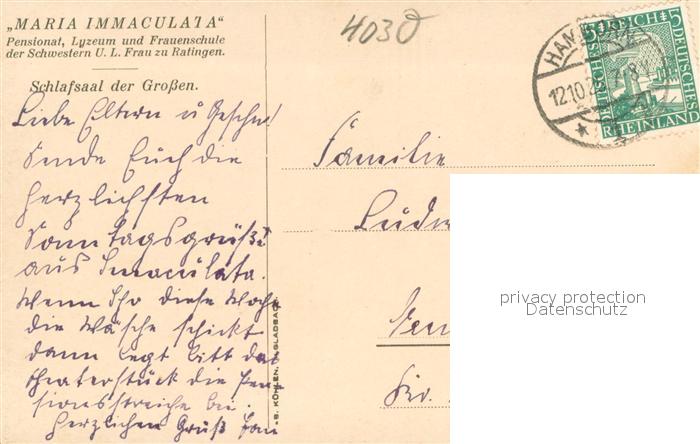 „MARIA IMMACULATA“
Pensionat, Lyzeum und Frauenschule
der Schwestern U. L. Frau zu Ratingen.
Schlafsaal der Großen.
4030
Liebe Eltern u Geschw!
Sende Euch die
herzlichsten
Sonntagsgrüße
aus Imaculata.
Wenn Ihr diese Woche
die Wäsche schickt
dann legt bitt das
Theaterstück die Pen
sionsstreiche bei.
Herzlichen Gruß
Familie
Ludw
Kr.
B. KÜHLEN, M.GLADBACH.
HAM
12.10.2
5 DEUTSCHES REICH 5
DEUTSCHES
RHEINLAND
privacy protection
Datenschutz